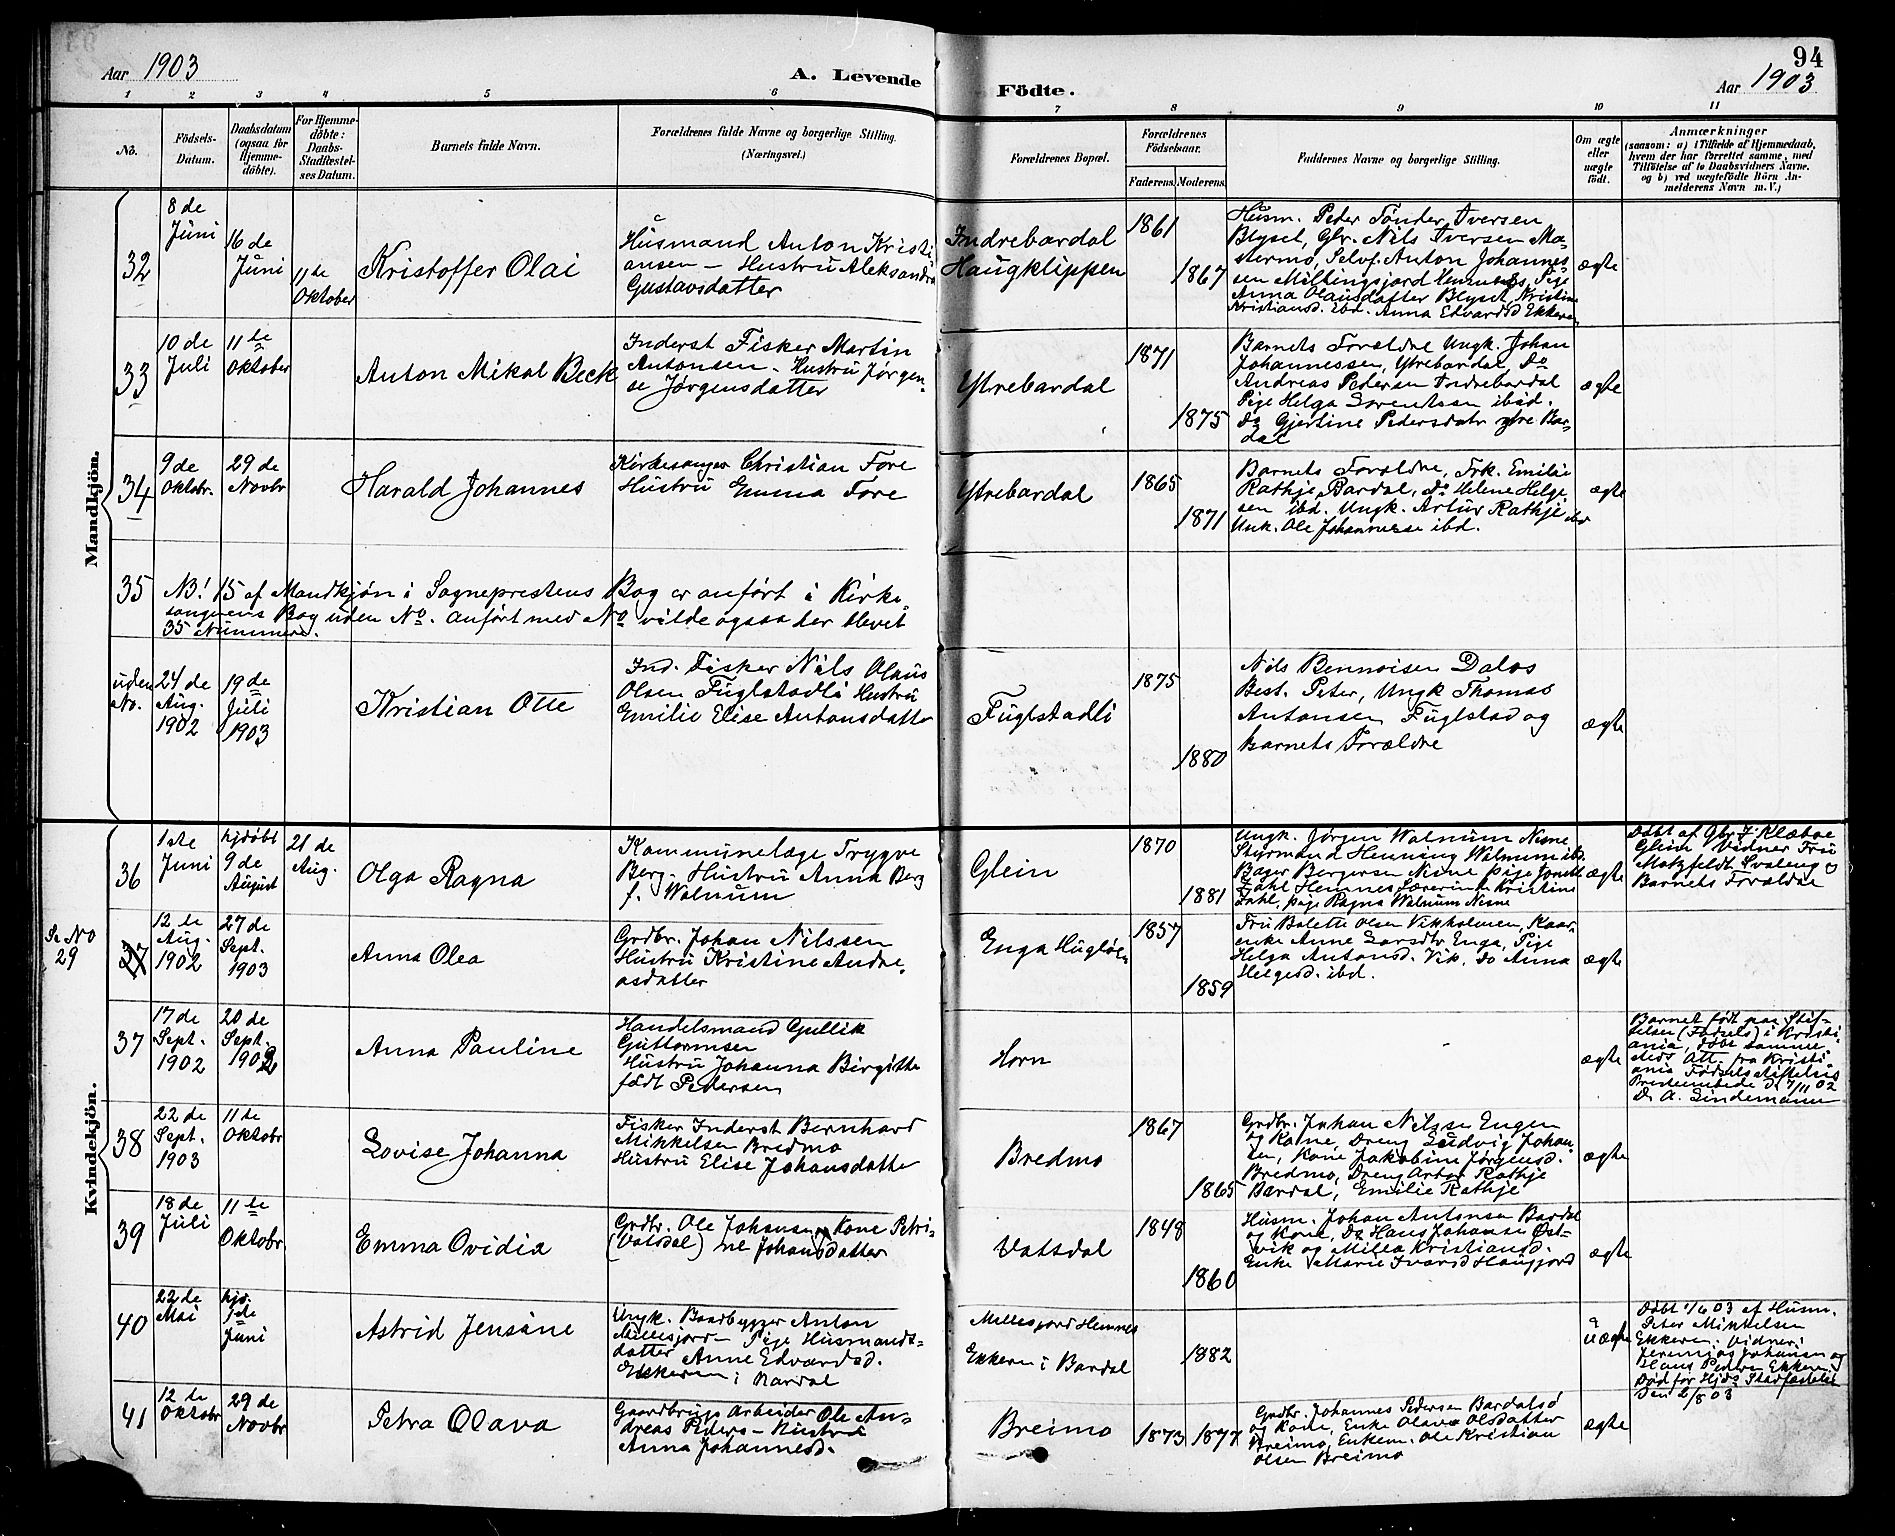 94
Aar 1903
A. Levende
Födte.
Aar 1903
1 2 3 4 5 6 7 8 9 10 11
No.
Födsels-
Datum.
Daabsdatum
(ogsaa för
Hjemme-
döbte).
For Hjemme-
döbte:
Daabs-
Stadfæstel-
ses Datum.
Barnets fulde Navn.
Forældrenes fulde Navne og borgerlige Stilling.
(Næringsvei.)
Forældrenes Bopæl.
Forældrenes
Födselsaar.
Faderens.
Moderens.
Faddernes Navne og borgerlige Stilling.
Om ægte
eller
uægte
födt.
Anmærkninger
(saasom: a) i Tilfælde af Hjemmedaab,
hvem der har forrettet samme, med
Tilföielse af to Daabsvidners Navne.
og b) ved uægtefödte Börn An-
melderens Navn m. V.)
Mandkjön.
32
8 de
Juni
16 de
Juni
11 te
Oktober
Kristoffer Olai
Husmand Anton Kristi
ansen - Hustru Aleksandra
Gustavsdatter
Indrebardal
Haugklippen
1861
1867
Husm. Peder Tönder Iversen
Blyset, Gbr. Nils Iversen Ma-
stermo, Selvf. Anton Johannes
sen Millingsjord Hemnes, Pige
Anna Olausdatter Blyset, Kristine
Kristiansd. ibd. Anna Edvardsd Ekkeren
ægte
33
10 de
Juli
11 te
Oktober
Anton Mikal Beck
Inderst Fisker Martin
Antonsen - Hustru Jörgen-
se Jörgensdatter
Ytrebardal
1871
1875
Barnets Forældre Ungk. Johan
Johannessen, Ytrebardal, Do
Andreas Pedersen Indrebardal
Pige Helga Lorentsen ibid.
Do Gjertine Pedersdatr ytre Bar-
dal
ægte
34
9 de
Oktobr.
29 de
Novbr
Harald Johannes
Kirkesanger Christian Fore
Hustru Emma Fore
Ytrebardal
1865
1871
Barnets Forældre, Frk. Emilie
Rathje, Bardal, Do Helene Helge
sen ibd. Ungk. Artur Rathje ibd
Unk. Ole Johannesse ibd.
ægte
35
NB! 15 af Mandkjön i Sogneprestens Bog er anfört i Kirke
sangerens Bog uden No. Anfört med No vilde ogsaa her blevet
35 Nummere.
uden
No.
24 de
Aug.
1902
19 de
Juli
1903
Kristian Otte
Ind. Fisker Nils Olaus
Olsen Fuglstadli Hustru
Emilie Elise Antonsdatter
Fuglstadli
1875
1880
Nils Dalos
Best. Peter, Ungk Thomas
Antonsen Fuglstad og
Barnets Forældre
ægte
Kvindekjön.
36
1ste
Juni
hjdöbt
9 de
August
21 de
Aug.
Olga Ragna
Kommunelæge Trygve
Berg - Hustru Anna Berg
f. Walnum
Glein
1870
1881
Ungk. Jörgen Walnum Nesne
Styrmand Henning Walnum ibd.
Bager Bergersen Nesne Pige
Dahl Hemnes Kristine
Dahl, Pige Ragna Walnum Nesne
ægte
Döbt af Gbr J Klæboe
Glein Vidner Fru
Motzfeldt Svaleng og
Barnets Forældre
Se No
29
37
12 te
Aug.
1902
27 de
Sept.
1903
Anna Olea
Grdbr. Johan Nilssen
Hustru Kristine Andre-
asdatter
Enga Huglöen
1857
1859
Fru Balette Olsen Vikholmen, Kaar-
enke Anne Larsdtr Enga, Pige
Helga Antonsd. Vik, Do Anna
Helgesd. ibd.
ægte
37
17 de
Sept.
1902
20 de
Sept.
1902
Anna Pauline
Handelsmand Gullik
Guttormsen
Hustru Johanna Birgitte
född Pedersen
Horn
ægte
Barnet födt paa Stif-
telsen (Födsels) i Kristi-
ania, döbt samme
sted Att. fra Kristi
ania Födselsstiftelses
Presteembede d. 7/11 02
Dr A. Lindemann
38
22 de
Sept.
1903
11 te
Oktobr
Lovise Johanna
Fisker Inderst Bernhard
Mikkelsen Bredmo
Hustru Elise Johansdatter
Bredmo
1867
1865
Grdbr. Johan Nilsen Engen
og Kone, Dreng Ludvig Johan
sen, Kone Jakobine Jörgensd.
Bredmo, Dreng Artur Rathje
Bardal, Emilie Rathje
ægte
39
18 de
Juli
11 te
Oktobr
Emma Ovidia
Grdbr. Ole Johansen Kone Petri-
(Vatsdal) ne Johansdatter
Vatsdal
1848
1860
Husm. Johan Antonsen Bardal
og Kone, Do Hans Johanse Öst-
vik og Milla Kristiansd.
Enke Marie Ivarsd Haugjord
ægte
40
22 de
Mai
hjd.
1 de
Juni
Astrid Jensine
Ungk. Baadbygger Anton
Millesjord - Pige Husmands-
datter Anne Edvardsd.
Ekkeren i Bardal
Millesjord Hemnes
Ekkeren i Bardal
1882
uægte
Döbt 1/6 03 af Husm.
Peter Mikkelsen
Ekkeren. Vidner:
Jeremias Johansen og
Hans Peder Ekkeren
Död för Hjds Stadfæstelse
den 2/8 03
41
12 te
Oktobr
29 de
Novbr
Petra Olava
Gaardbrugs Arbeider Ole An-
dreas Peders - Hustru
Anna Johannesd.
Breimo
1873
1877
Grdbr. Johannes Pedersen Bardalsö
og Kone, Enke Olava Olsdatter
Breimo, Enkem. Ole Kristian
Olsen Breimo
ægte